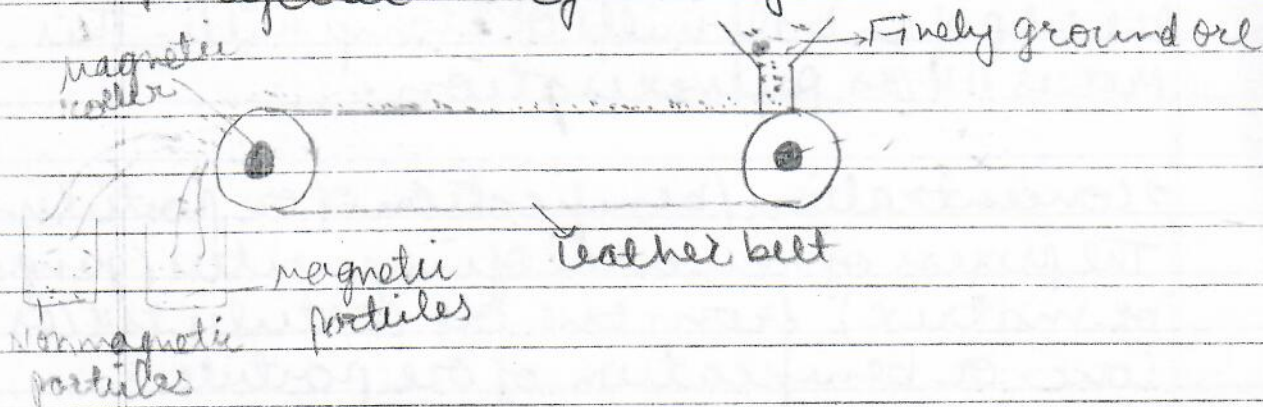 Finely ground ore
magnetic
roller
leather belt
magnetic
particles
Nonmagnetic
particles